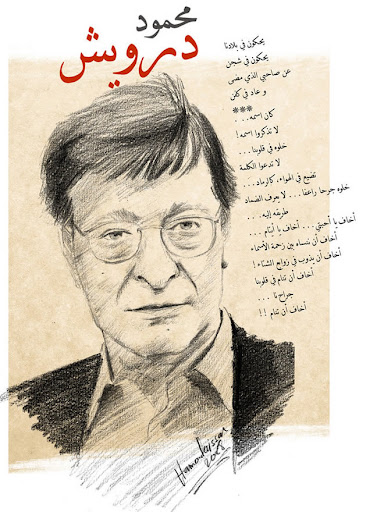 محمود
درويش
يحكون في بلادنا
يحكون في شجن
عن صاحبي الذي مضى
و عاد في كفن
***
كان اسمه. . .
لا تذكروا اسمه!
خلوه في قلوبنا. . .
لا تدعوا الكلمة
تضيع في الهواء، كالرماد. . .
خلوه جرحا راعفا. . . لا يعرف الضماد
طريقه إليه. . .
أخاف يا أحبتي. . . أخاف يا أيتام . . .
أخاف أن ننساه بين زحمة الأسماء
أخاف أن يذوب في زوابع الشتاء!
أخاف أن تنام في قلوبنا
جراحنا . . .
أخاف أن تنام !!